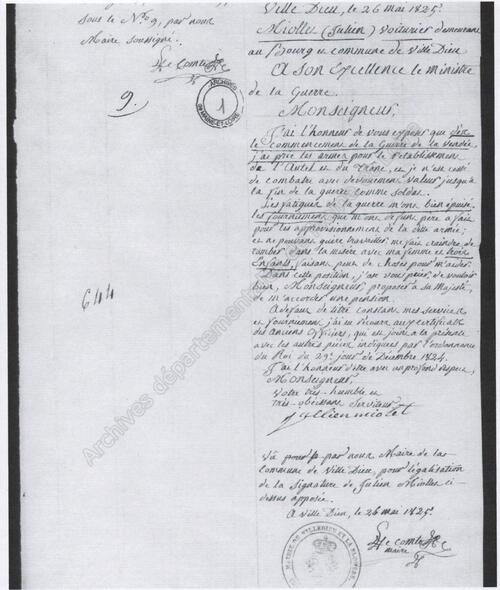 sous le N.º 9, par nous
Maire soussigné.
Le Comte
9.
ARCHIVES
DE MAINE-ET-LOIRE
1
644
Archives départementales
Ville Dieu, le 26 mai 1825.
Miollet (Julien) Voiturier demeurant
au Bourg et commune de Ville Dieu
A Son Excellence le Ministre
de la Guerre.
Monseigneur,
J'ai l'honneur de vous exposer que dès
le commencement de la Guerre de la Vendée,
j'ai pris les armes pour le rétablissement
de l'Autel et du Trône, et je n'ai cessé
de combatre avec devouement valeur jusqu'à
la fin de la guerre comme soldat.
Les fatigues de la guerre m'ont bien épuisé
les fournitures que mon defunt père a fait
pour les approvisionnement de la dite armée;
et ne pouvant guère travailler me fait craindre de
tomber dans la misère avec ma femme et trois
Enfants, faisant peu de choses pour m'aider
Dans cette position, j'ose vous prier de vouloir
bien, Monseigneur, proposer à Sa Majesté,
de m'accorder une pension.
A defaut de titre constant mes services
et fournitures j'ai eu recours aux certificats
des Anciens Officiers, qui est joint à la présente
avec les autres pièces indiquées par l'ordonnance
du Roi du 29e jour de Décembre 1824.
J'ai l'honneur d'être avec un profond respect,
Monseigneur,
Votre très-humble et
très-obéissant serviteur
jullien miolet
Vu par nous Maire de la
Commune de Ville Dieu, pour légalisation
de la Signature de Julien Miollet ci-
dessus apposée.
A Ville Dieu, le 26 mai 1825.
Le Comte
maire
MAIRIE DE VILLEDIEU ET LA BLOUERE